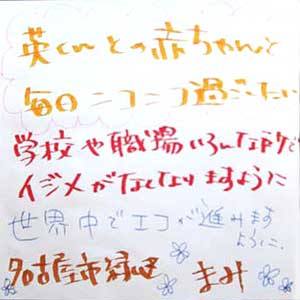 英くんとの赤ちゃんと
毎日ニコニコ過ごしたい
学校や職場いろんな所で
イジメがなくなりますように
世界中でエコが進みます
ように。
名古屋市緑区 まみ